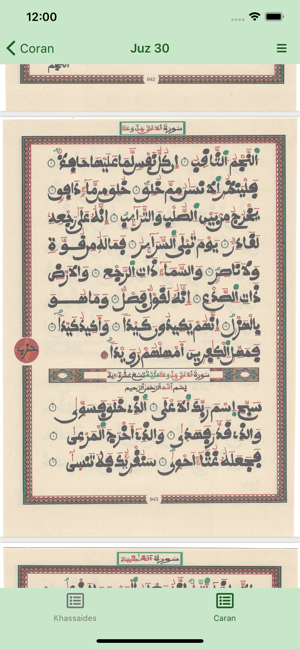 12:00
Coran
Juz 30
942
النجم الثاقب ان كل نفس لما عليها حافظ
فلينظر الانسن مم خلق خلق من ماء دافق
يخرج من بين الصلب والترايب انه على رجعه
لقادر يوم تبلى السراير فما له من قوة
ولا ناصر والسماء ذات الرجع والارض
ذات الصدع انه لقول فصل وما هو
بالهزل انهم يكيدون كيدا واكيد كيدا
فمهل الكفرين امهلهم رويدا
بسم الله الرحمن الرحيم
سبح اسم ربك الاعلى الذي خلق فسوى
والذي قدر فهدى والذي اخرج المرعى
فجعله غثاء احوى سنقريك فلا تنسى
943
Khassaides
Caran